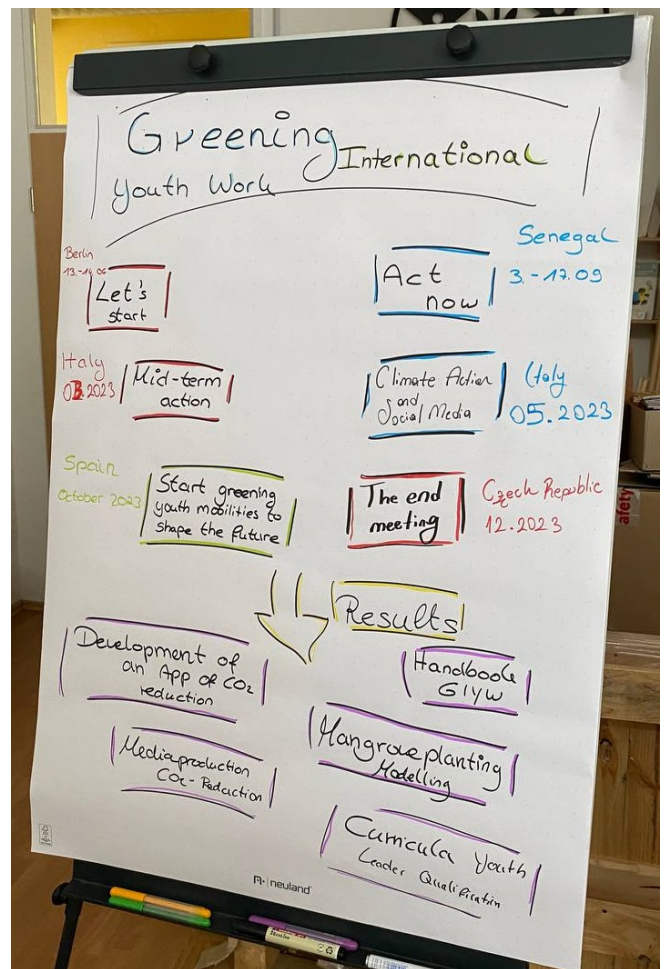 Greening International
Youth Work
Berlin
13.-14.06
Let's
start
Senegal
3.-17.09
Act
now
Italy
03.2023
Mid-term
action
Climate Action
and
Social Media
Italy
05.2023
Spain
October 2023
Start greening
youth mobilities to
shape the future
The end
meeting
Czech Republic
12.2023
Results
Development of
an App of CO₂
reduction
Handbook
GIYW
Mediaproduction
CO₂-Reduction
Mangroveplanting
Modelling
Curricula Youth
Leader Qualification
neuland
afety